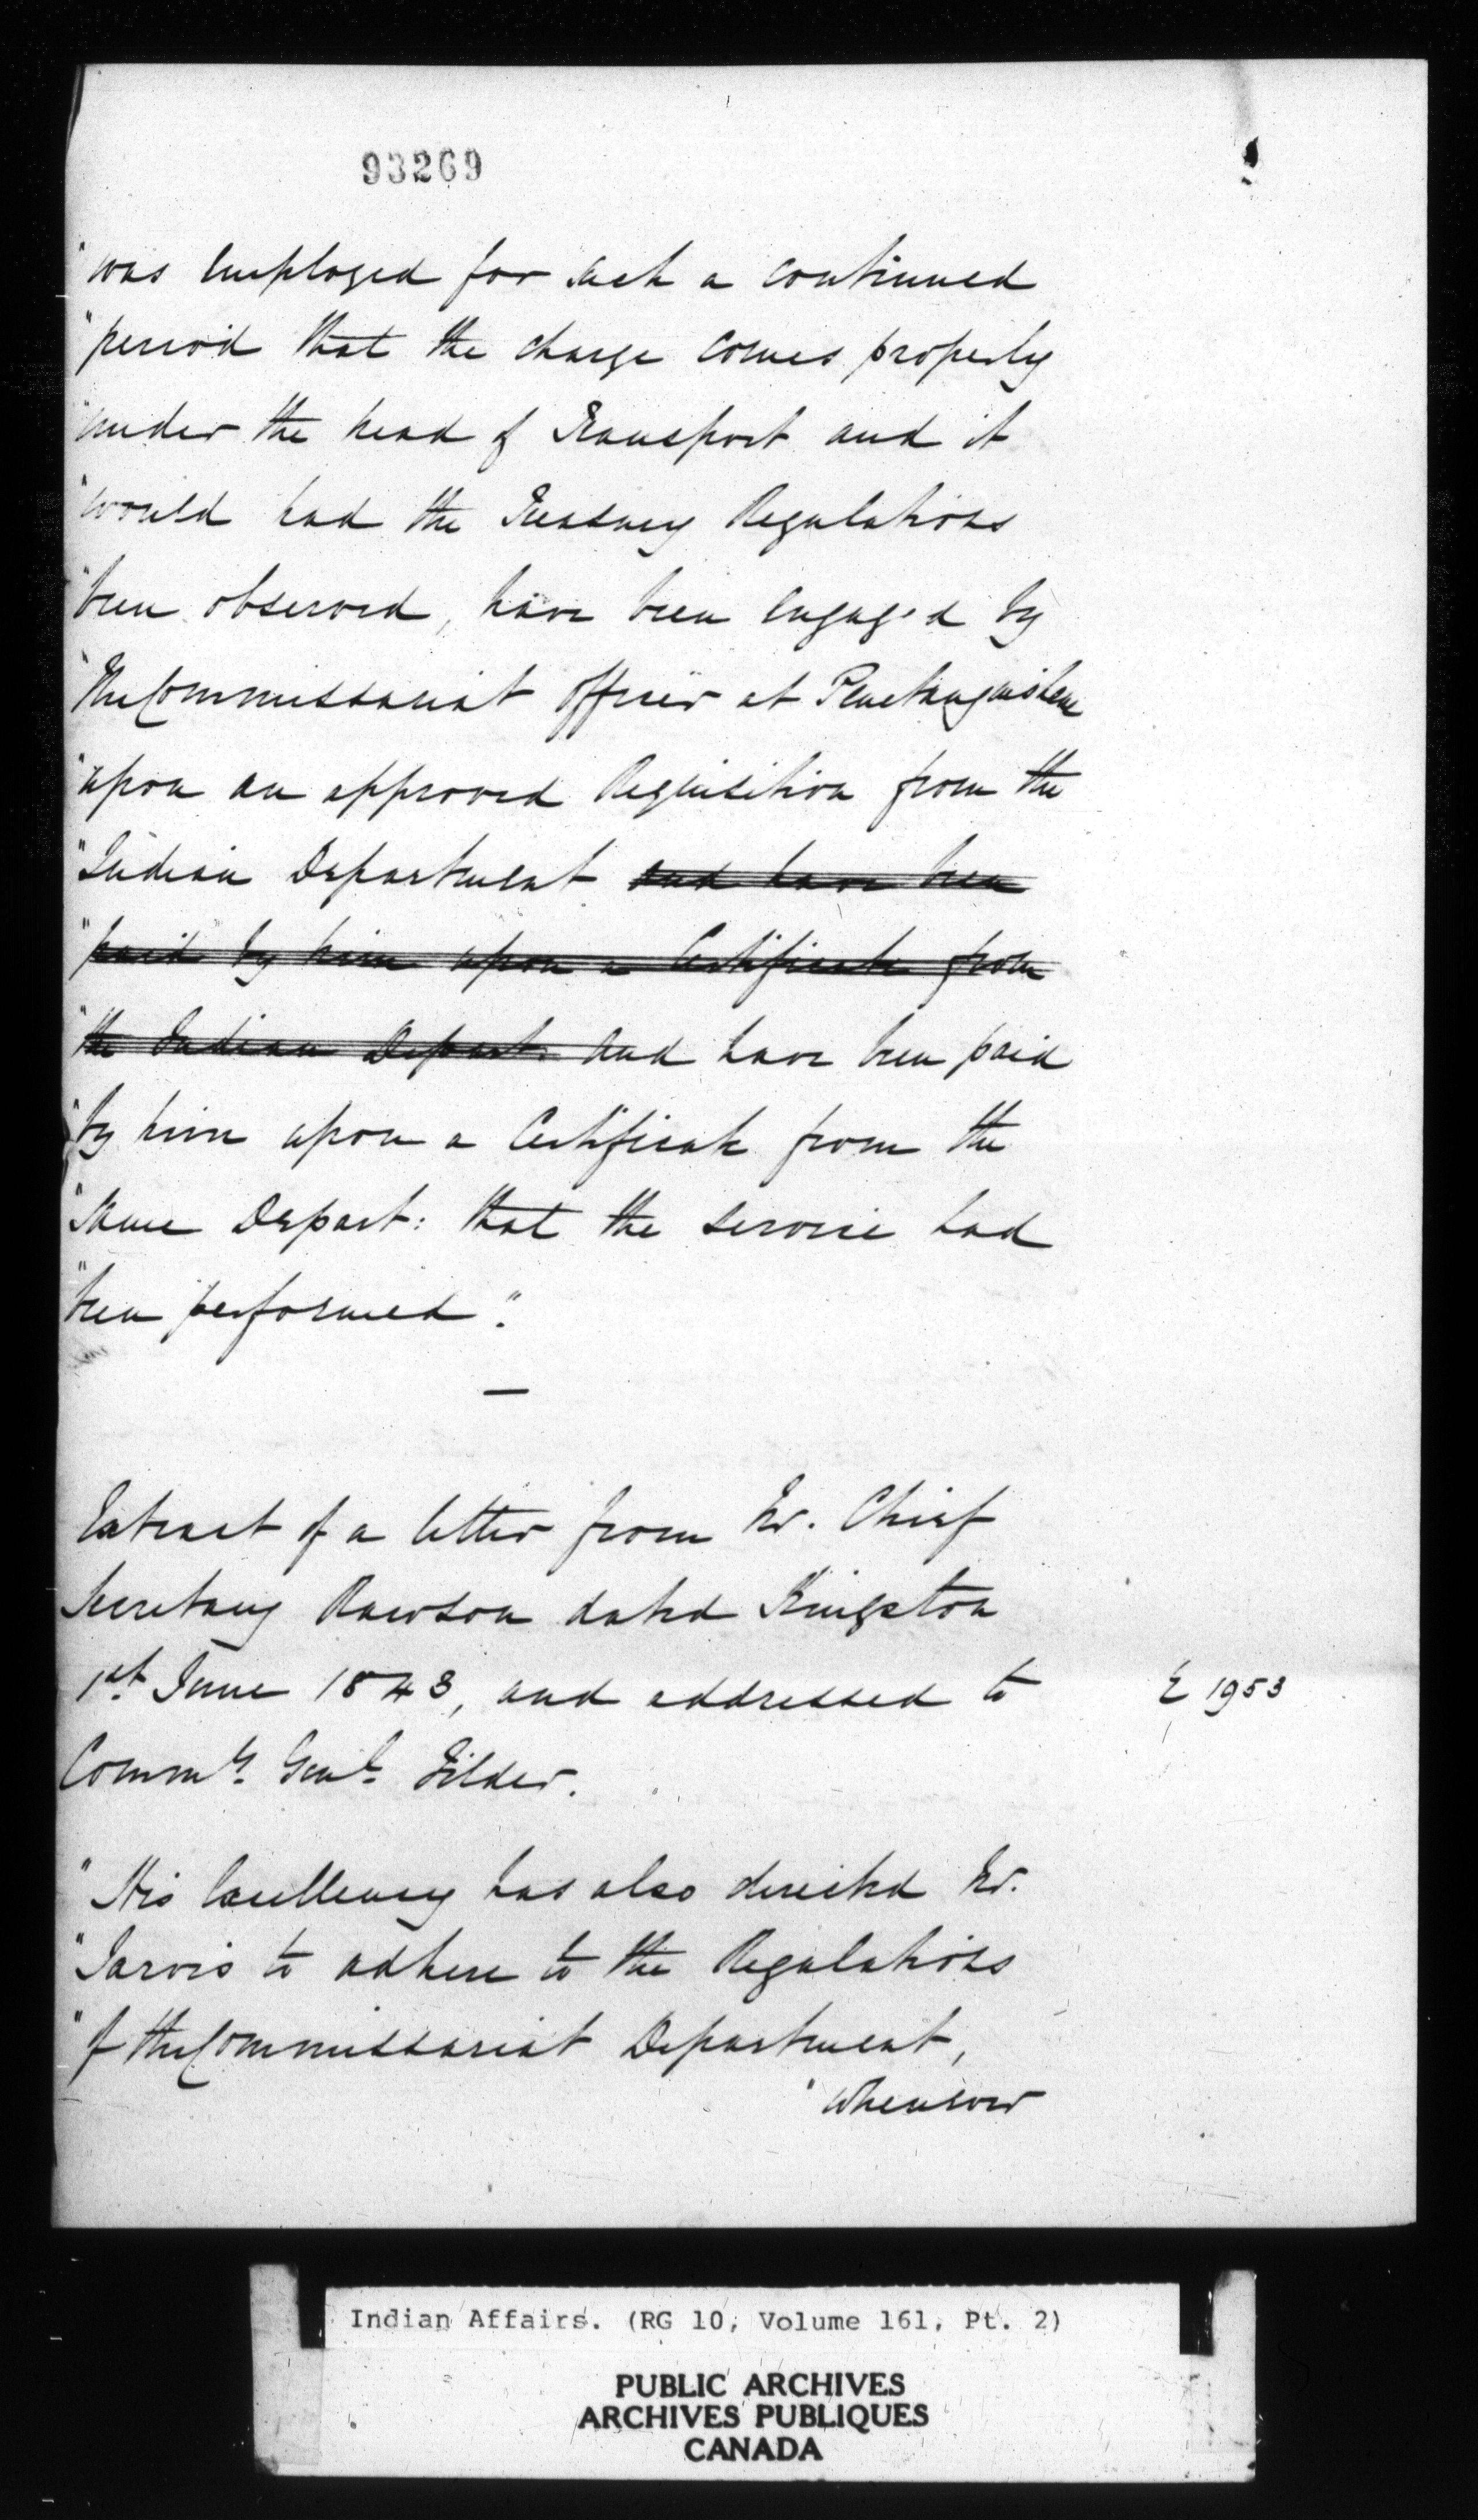 93269
"was employed for such a continued
"period that the charge comes properly
"under the head of Transport and it
"would had the Treasury Regulations
"been observed, have been engaged by
"the Commissariat Officer at Penetanguishene
"upon an approved Requisition from the
"Indian Department and have been
"paid by him upon a Certificate from
"the Indian Depart. and have been paid
"by him upon a Certificate from the
"same Depart: that the service had
"been performed".
—
Extract of a letter from Mr. Chief
Secretary Rawson dated Kingston
1st June 1843, and addressed to
E 1953
Commy. Genl. Filder.
"His Excellency has also directed Mr.
"Jarvis to adhere to the Regulations
"of the Commissariat Department,
"whensover
Indian Affairs. (RG 10, Volume 161, Pt. 2)
PUBLIC ARCHIVES
ARCHIVES PUBLIQUES
CANADA